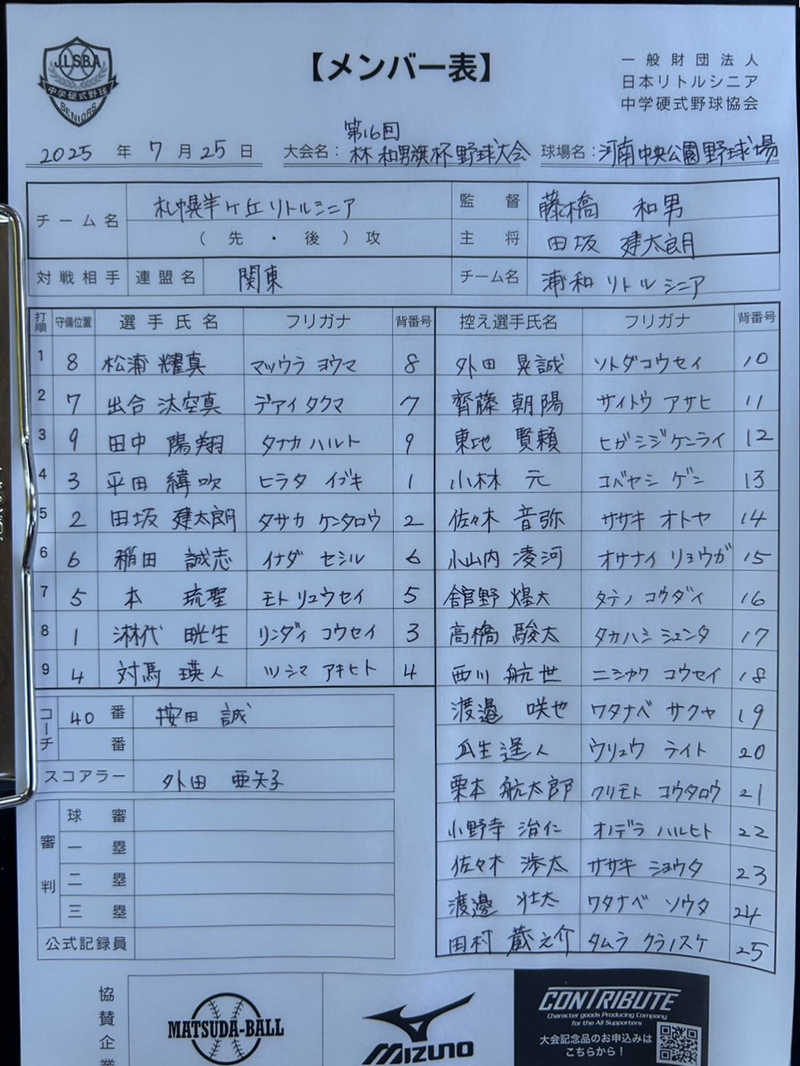 JLSBA
中学硬式野球
SENIORS
【メンバー表】
一般財団法人
日本リトルシニア
中学硬式野球協会
2025 年 7 月 25 日 大会名: 第16回 林 和男旗杯野球大会 球場名: 河南中央公園野球場
チーム名 札幌羊ヶ丘リトルシニア 監督 藤橋 和男
(先・後)攻 主将 田坂 建太朗
対戦相手 連盟名 関東 チーム名 浦和リトルシニア
打順 守備位置 選手氏名 フリガナ 背番号 控え選手氏名 フリガナ 背番号
1 8 松浦 耀真 マツウラ ヨウマ 8 外田 晃誠 ソトダコウセイ 10
2 7 出合 汰空真 デアイタクマ 7 齊藤 朝陽 サイトウ アサヒ 11
3 9 田中 陽翔 タナカハルト 9 東地 賢頼 ヒガシジケンライ 12
4 3 平田 緯吹 ヒラタ イブキ 1 小林 元 コバヤシ ゲン 13
5 2 田坂 建太朗 タサカ ケンタロウ 2 佐々木 音弥 ササキ オトヤ 14
6 6 稲田 誠志 イナダ セシル 6 小山内 凌河 オサナイ リョウガ 15
7 5 本 琉聖 モトリュウセイ 5 舘野 煌大 タテノ コウダイ 16
8 1 淋代 晄生 リンダイ コウセイ 3 高橋 駿太 タカハシ シュンタ 17
9 4 対馬 瑛人 ツシマ アキヒト 4 西川 航世 ニシカワ コウセイ 18
渡邉 咲也 ワタナベ サクヤ 19
瓜生遥人 ウリュウ ライト 20
栗本 航太郎 クリモト コウタロウ 21
小野寺 治仁 オノデラ ハルヒト 22
佐々木 渉太 ササキ ショウタ 23
渡邉 壮太 ワタナベ ソウタ 24
田村 蔵之介 タムラ クラノスケ 25
コーチ 40 番 誠
番
スコアラー 外田 亜矢子
審判
球審
一塁
二塁
三塁
公式記録員
協賛企業
MATSUDA-BALL
MIZUNO
CONTRIBUTE
Character goods Producing Company
for the All Supporters
大会記念品のお申込みは
こちらから!